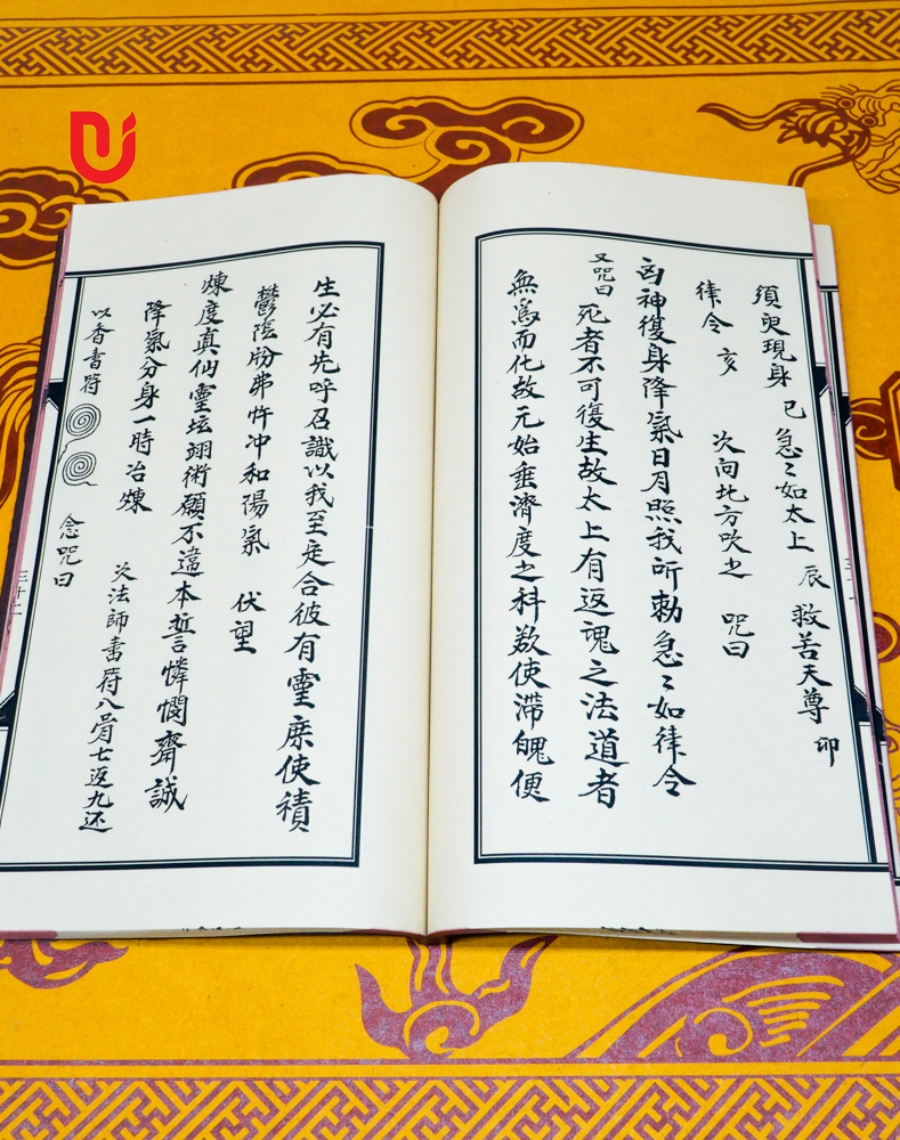 須臾現身 巳 急〻如太上 辰 救苦天尊 卯
律令 亥 次向北方吹之 咒曰
凶神復身降氣日月照我所勅急〻如律令
又咒曰 死者不可復生故太上有返魂之法道者
無為而化故元始垂濟度之科欻使滯魄便
生必有先呼召識以我至定合彼有靈庶使積
鬱陰肹弗忤冲和陽氣 伏望
煉度真仙靈坛翊術願不違本誓憐憫齋誠
降氣分身一時冶煉 次法師書符八骨七返九还
以香書符 念咒曰
三十二